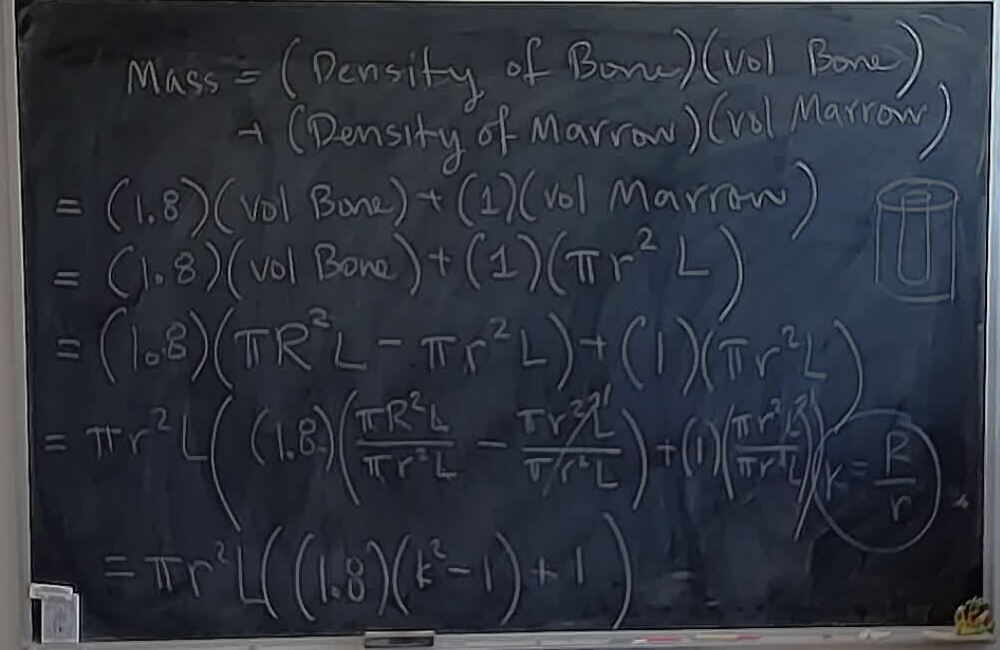 Mass = (Density of Bone)(vol Bone)
+ (Density of Marrow)(vol Marrow)
= (1.8)(vol Bone) + (1)(vol Marrow)
= (1.8)(vol Bone) + (1)(πr² L)
= (1.8)(πR²L - πr²L) + (1)(πr²L)
= πr²L((1.8)(πR²L/πr²L - πr²L/πr²L) + (1)(πr²L/πr²L))
k = R/r
= πr²L((1.8)(k²-1)+1)